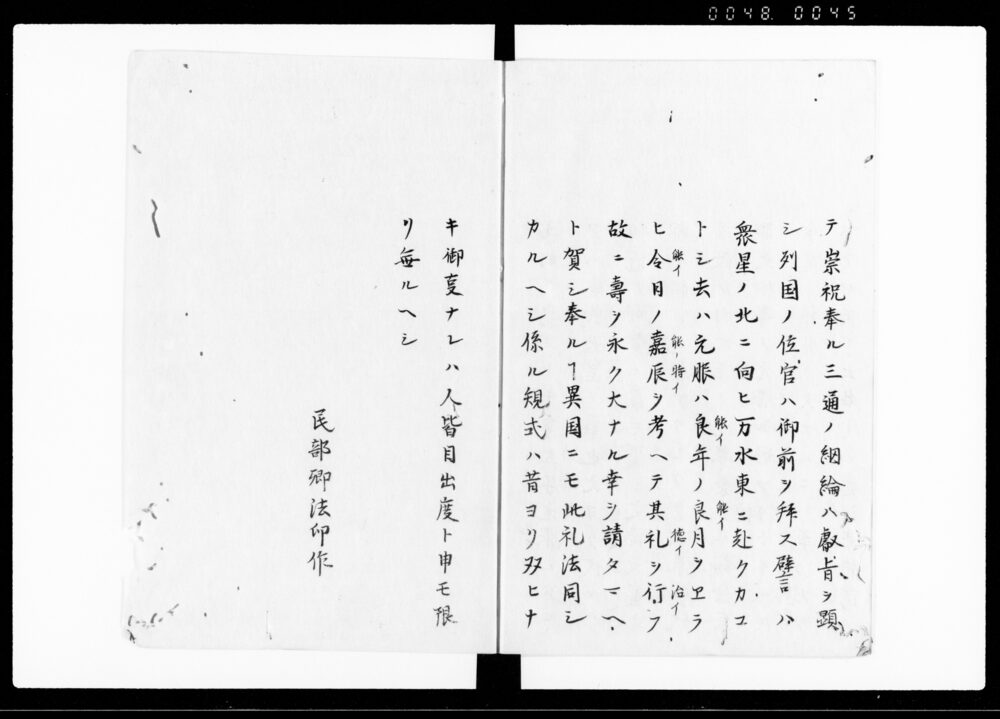 0048. 0045
テ崇祝奉ル三通ノ綑綸ハ叡旨ヲ顕
シ列国ノ位官ハ御前ヲ拜ス譬言ハ
衆星ノ北ニ向ヒ万水東ニ赴クカコ
トシ去ハ元服ハ良年ノ良月ヲヱラ
能イ 能イ
ヒ令月ノ嘉辰ヲ考ヘテ其礼ヲ行フ
能イ 能ノ特イ 徳イ 治イ
故ニ壽ヲ永ク大ナル幸ヲ請タマヘ
ト賀シ奉ルヿ異国ニモ此礼法同シ
カルヘシ係ル規式ハ昔ヨリ双ヒナ
キ御叓ナレハ人皆目出度ト申モ限
リ無ルヘシ
民部卿法印作